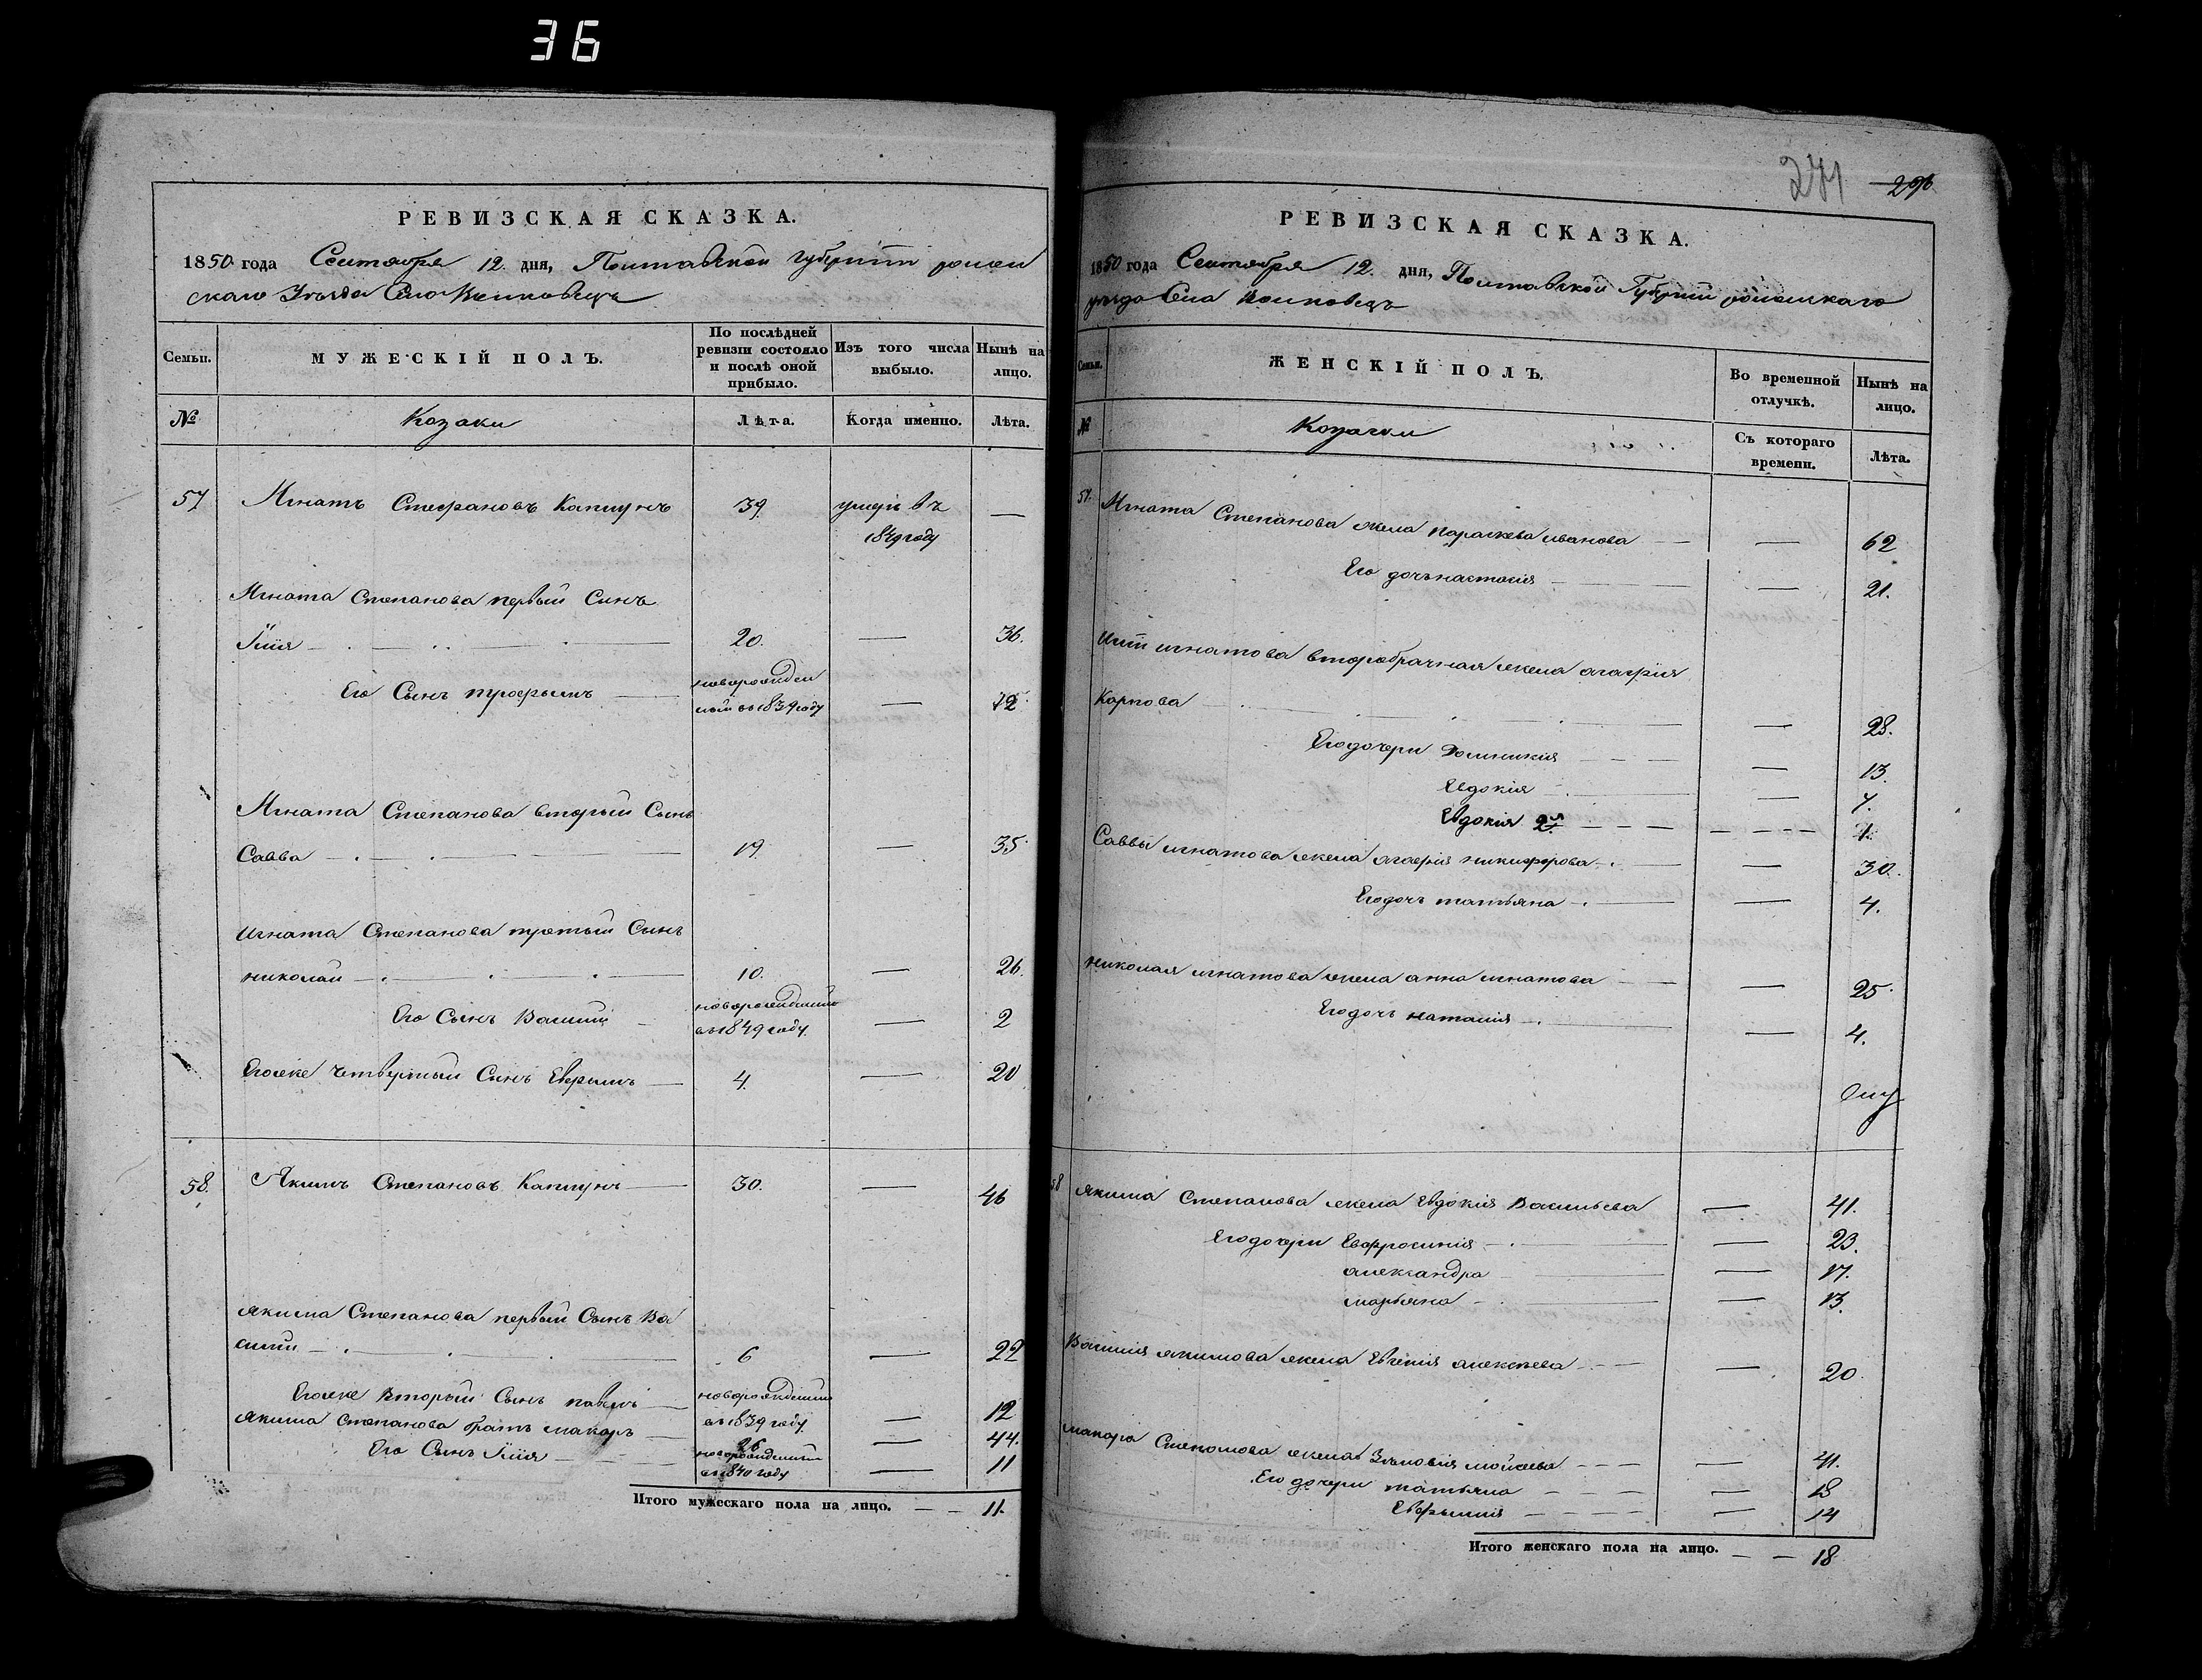 36
РЕВИЗСКАЯ СКАЗКА.
1850 года Сентября 12. дня, Полтавской Губерніи ромен
скаго Уезда Село
Семьи.
МУЖЕСКІЙ ПОЛЪ.
По послѣдней ревизіи состояло и послѣ оной прибыло.
Изъ того числа выбыло.
Нынѣ на лицо.
№
Козаки
Лѣта.
Когда именно.
Лѣта.
57 Игнатъ Стефановъ Каптунъ 39 умеръ въ —
1849 году
Игната Степанова первый Сынъ
Илія — 20. — 36.
Его Сынъ трофимъ — новорожден
ный въ 1839 году — 12
Игната Степанова вторый Сынъ
Савва — 19. — 35.
Игната Степанова третый Сынъ
николай — 10. — 26.
Его Сынъ Василій новорожденный
въ 1849 году — 2
Егоже четвертый Сынъ Ефимъ — 4. — 20
58. Якимъ Степановъ Каптунъ — 30. — 46
Якима Степанова первый Сынъ Ва
силий — 6 — 22
Егоже Вторый Сынъ павелъ — новорожденный
въ 1839 году — 12
Якима Степанова братъ макаръ — 28 — 44.
Его Сынъ Илія — новорожденный
въ 1840 году — 11
Итого мужескаго пола на лицо. — — 11.
271 296
РЕВИЗСКАЯ СКАЗКА.
1850 года Сентября 12. дня, Полтавской Губерніи роменскаго
уезда Села
Семьи.
ЖЕНСКІЙ ПОЛЪ.
Во временной отлучкѣ.
Нынѣ на лицо.
№
Козачки
Съ котораго времени.
Лѣта.
57. Игната Степанова жена параскева иванова — — 62
Его дочь настасія — — 21.
Иліи игнатова второбрачная жена агафія
Карпова — — 28.
Его дочери Домникія — — 13.
Евдокія — — 7.
Евдокія 2я — — 1.
Саввы игнатова жена агафія никифорова — — 30.
Его дочь татьяна — — 4.
николая игнатова жена анна игнатова — — 25.
Его дочь наталія — — 4.
58 Якима Степанова жена Евдокія Васильева — 41.
Его дочери Евфросинія — — 23.
александра — — 17.
марьяна — — 13.
Василія якимова жена Евгенія алексѣева — — 20.
макара Степанова жена Зѣновія мойсеева — — 41.
Его дочери татьяна — — 18
Евфимія — — 14
Итого женскаго пола на лицо. — — 18